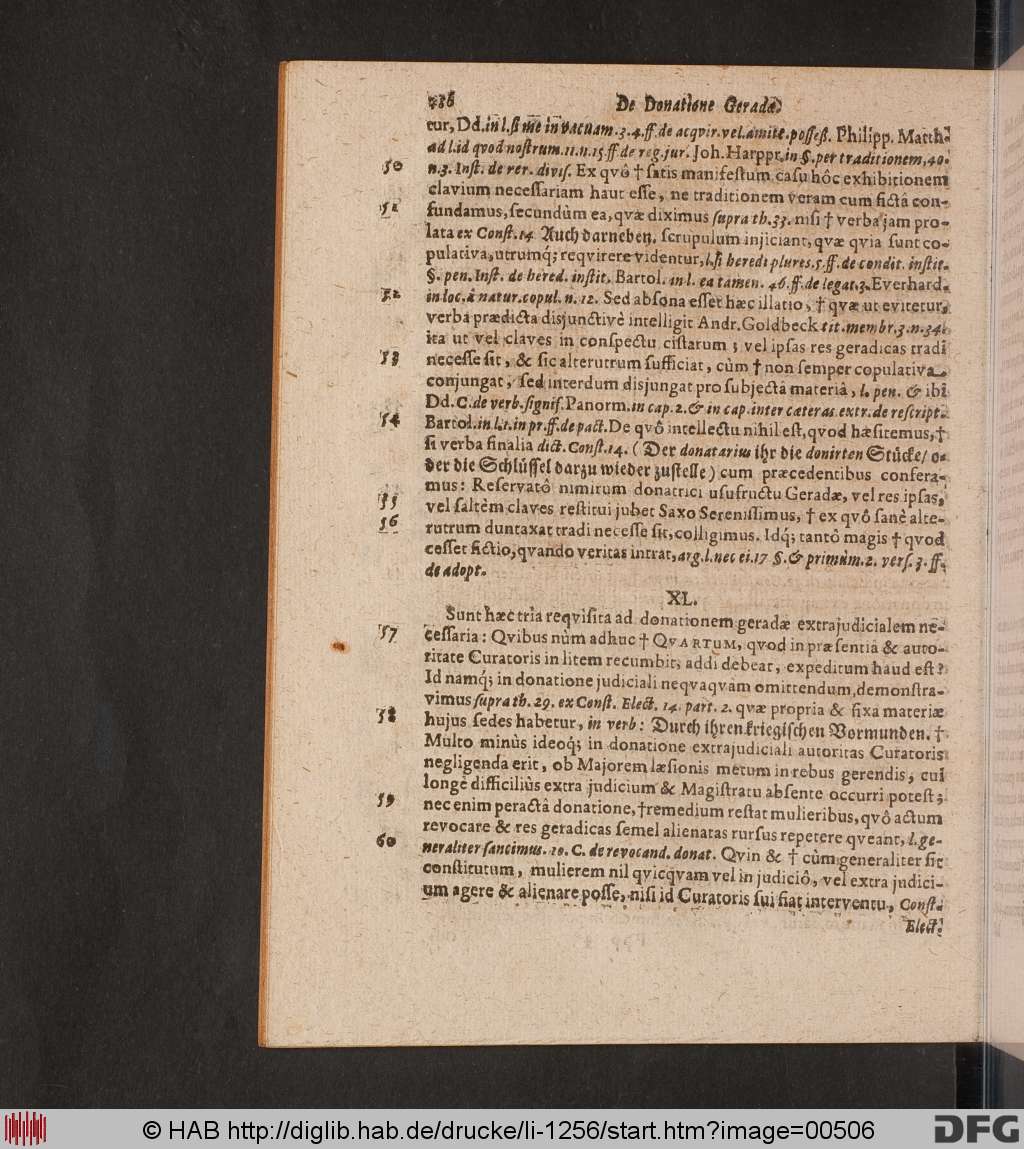 486 De Donatione Geradæ
tur, Dd. in l. si me in vacuam. 3. 4. ff. de acqvir. vel. amitt. posseß. Philipp. Matth.
ad l. id qvod nostrum. 11. n. 15. ff. de reg. jur. Joh. Harppr. in §. per traditionem, 40.
50 n. 3. Inst. de rer. divis. Ex qvô † satis manifestum casu hôc exhibitionem
clavium necessariam haut esse, ne traditionem veram cum fictâ con-
51 fundamus, secundùm ea, qvæ diximus supra th. 33. nisi † verba jam pro-
lata ex Const. 14 Auch darneben. scrupulum injiciant, qvæ qvia sunt co-
pulativa, utrumq́; reqvirere videntur, l. si heredi plures. 5. ff. de condit. instit.
§. pen. Inst. de hered. instit. Bartol. in l. ea tamen. 46. ff. de legat. 3. Everhard.
52 in loc. à natur. copul. n. 12. Sed absona esset hæc illatio, † qvæ ut evitetur,
verba prædicta disjunctivè intelligit Andr. Goldbeck tit. membr. 3. n. 34.
ita ut vel claves in conspectu cistarum; vel ipsas res geradicas tradi
53 necesse sit, & sic alterutrum sufficiat, cùm † non semper copulativa
conjungat, sed interdum disjungat pro subjectâ materiâ, l. pen. & ibi
Dd. C. de verb. signif. Panorm. in cap. 2. & in cap. inter cæteras. extr. de rescript.
54 Bartol. in l. 1. in pr. ff. de pact. De qvô intellectu nihil est, qvod hæsitemus, †
si verba finalia dict. Const. 14. (Der donatarius ihr die donirten Stücke/ o-
der die Schlüssel darzu wieder zustelle) cum præcedentibus confera-
mus: Reservatô nimirum donatrici usufructu Geradæ, vel res ipsas,
55 vel saltèm claves restitui jubet Saxo Serenissimus, † ex qvô sanè alte-
56 rutrum duntaxat tradi necesse sit, colligimus. Idq́; tantô magis † qvod
cesset fictio, qvando veritas intrat, arg. l. nec ei. 17 §. & primùm. 2. vers. 3. ff.
de adopt.
XL.
Sunt hæc tria reqvisita ad donationem geradæ extrajudicialem ne-
57 cessaria: Qvibus nùm adhuc † QVARTUM, qvod in præsentiâ & auto-
ritate Curatoris in litem recumbit, addi debeat, expeditum haud est?
Id namq́; in donatione judiciali neqvaqvàm omittendum, demonstra-
vimus supra th. 29. ex Const. Elect. 14. part. 2. qvæ propria & fixa materiæ
58 hujus sedes habetur, in verb: Durch ihren kriegischen Vormunden. †
Multo minùs ideoq́; in donatione extrajudiciali autoritas Curatoris
negligenda erit, ob Majorem læsionis metum in rebus gerendis, cui
longè difficiliùs extra judicium & Magistratu absente occurri potest;
59 nec enim peractâ donatione, † remedium restat mulieribus, qvô actum
revocare & res geradicas semel alienatas rursus repetere qveant, l. ge-
60 neraliter sancimus. 10. C. de revocand. donat. Qvin & † cùm generaliter sit
constitutum, mulierem nil qvicqvam vel in judiciô, vel extra judici-
um agere & alienare posse, nisi id Curatoris sui fiat interventu, Const.
Elect.
© HAB http://diglib.hab.de/drucke/li-1256/start.htm?image=00506 DFG